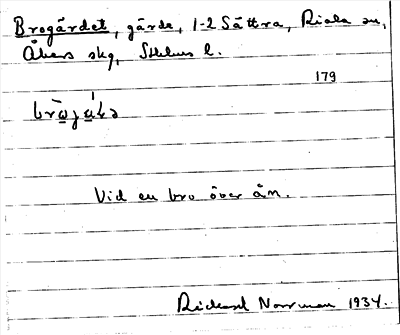 Brogärdet, gärde, 1-2 Sättra, Riala sn,
Åkers skg, Sthlms l.
179
Vid en bro över ån.
Rickard Norrman 1934.